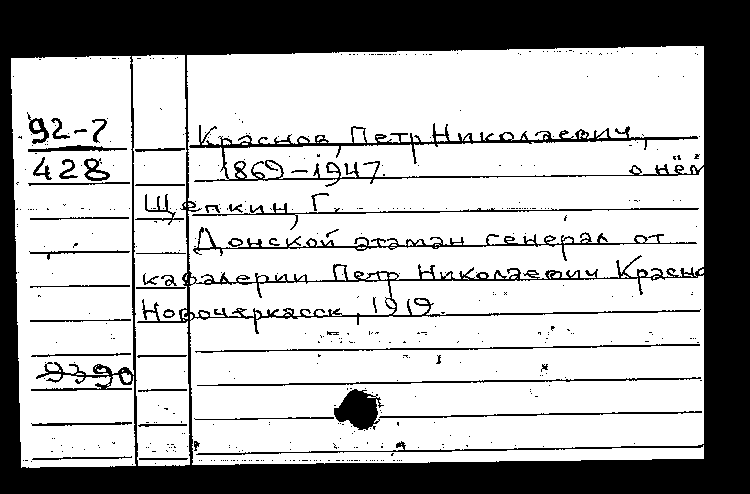 92-7
428
Краснов, Петр Николаевич,
1869-1947.
о нём
Щепкин, Г.
Донской атаман генерал от
кавалерии Петр Николаевич Красно
Новочеркасск, 1919.
9390